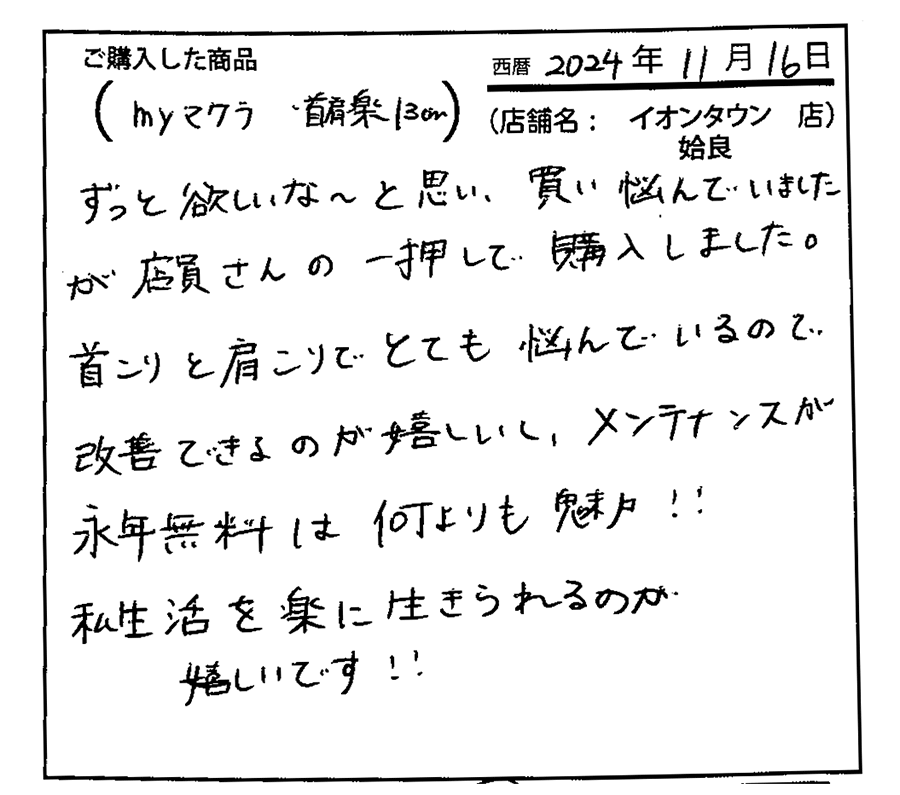 ご購入した商品
西暦 2024年 11月 16日
(myマクラ 首肩楽13cm)
(店舗名: イオンタウン 店)
姶良
ずっと欲しいな〜と思い、買い悩んでいました
が店員さんの一押しで購入しました。
首こりと肩こりでとても悩んでいるので
改善できるのが嬉しいし、メンテナンスが
永年無料は何よりも魅力!!
私生活を楽に生きられるのが
嬉しいです!!